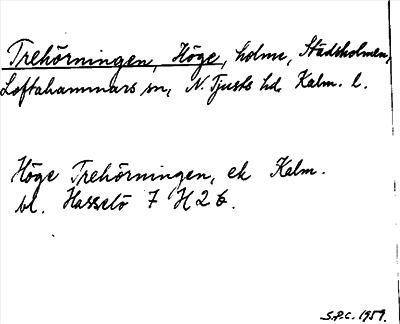 Trehörningen, Höge, holme, Stadsholmen,
Loftahammars sn, N. Tjusts hd. Kalm. l.
Höge Trehörningen, ek Kalm.
bl. Hasselö 7 H 2 b.
S.P.C. 1959.